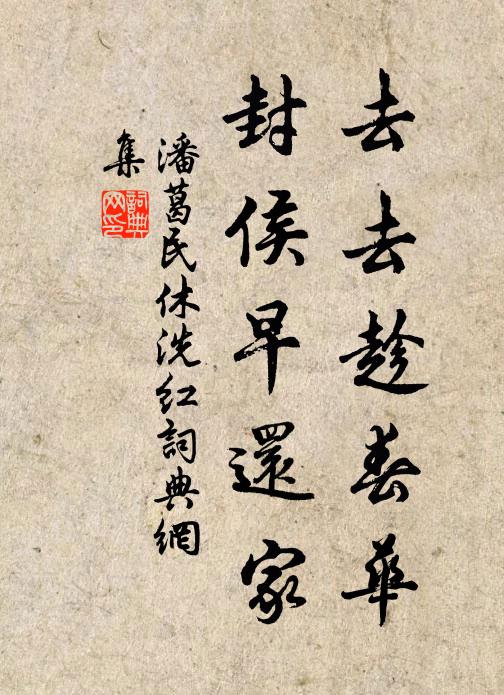 去去趁春華
封侯早還家
潘葛民休洗紅詞典網
集
詞典
网印